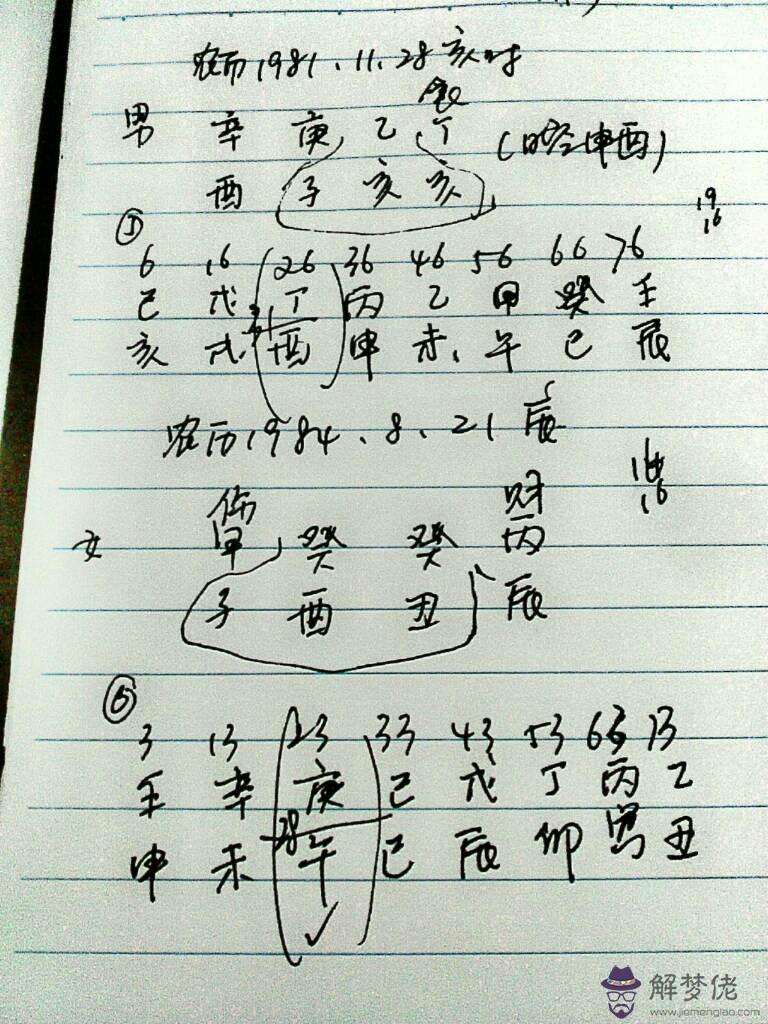 农历1981.11.28亥时
食
男 辛 庚 乙 丁 (空申酉)
酉 子 亥 亥
19
16
①
6 16 26 36 46 56 66 76
己 戊 丁 丙 乙 甲 癸 壬
亥 戌 酉 申 未 午 巳 辰
农历1984.8.21辰
16
伤 财
女 甲 癸 癸 丙
子 酉 丑 辰
3 13 23 33 43 53 63 73
壬 辛 庚 己 戊 丁 丙 乙
申 未 28 午 巳 辰 卯 寅 丑
解梦佬
www.jiemenglao.com